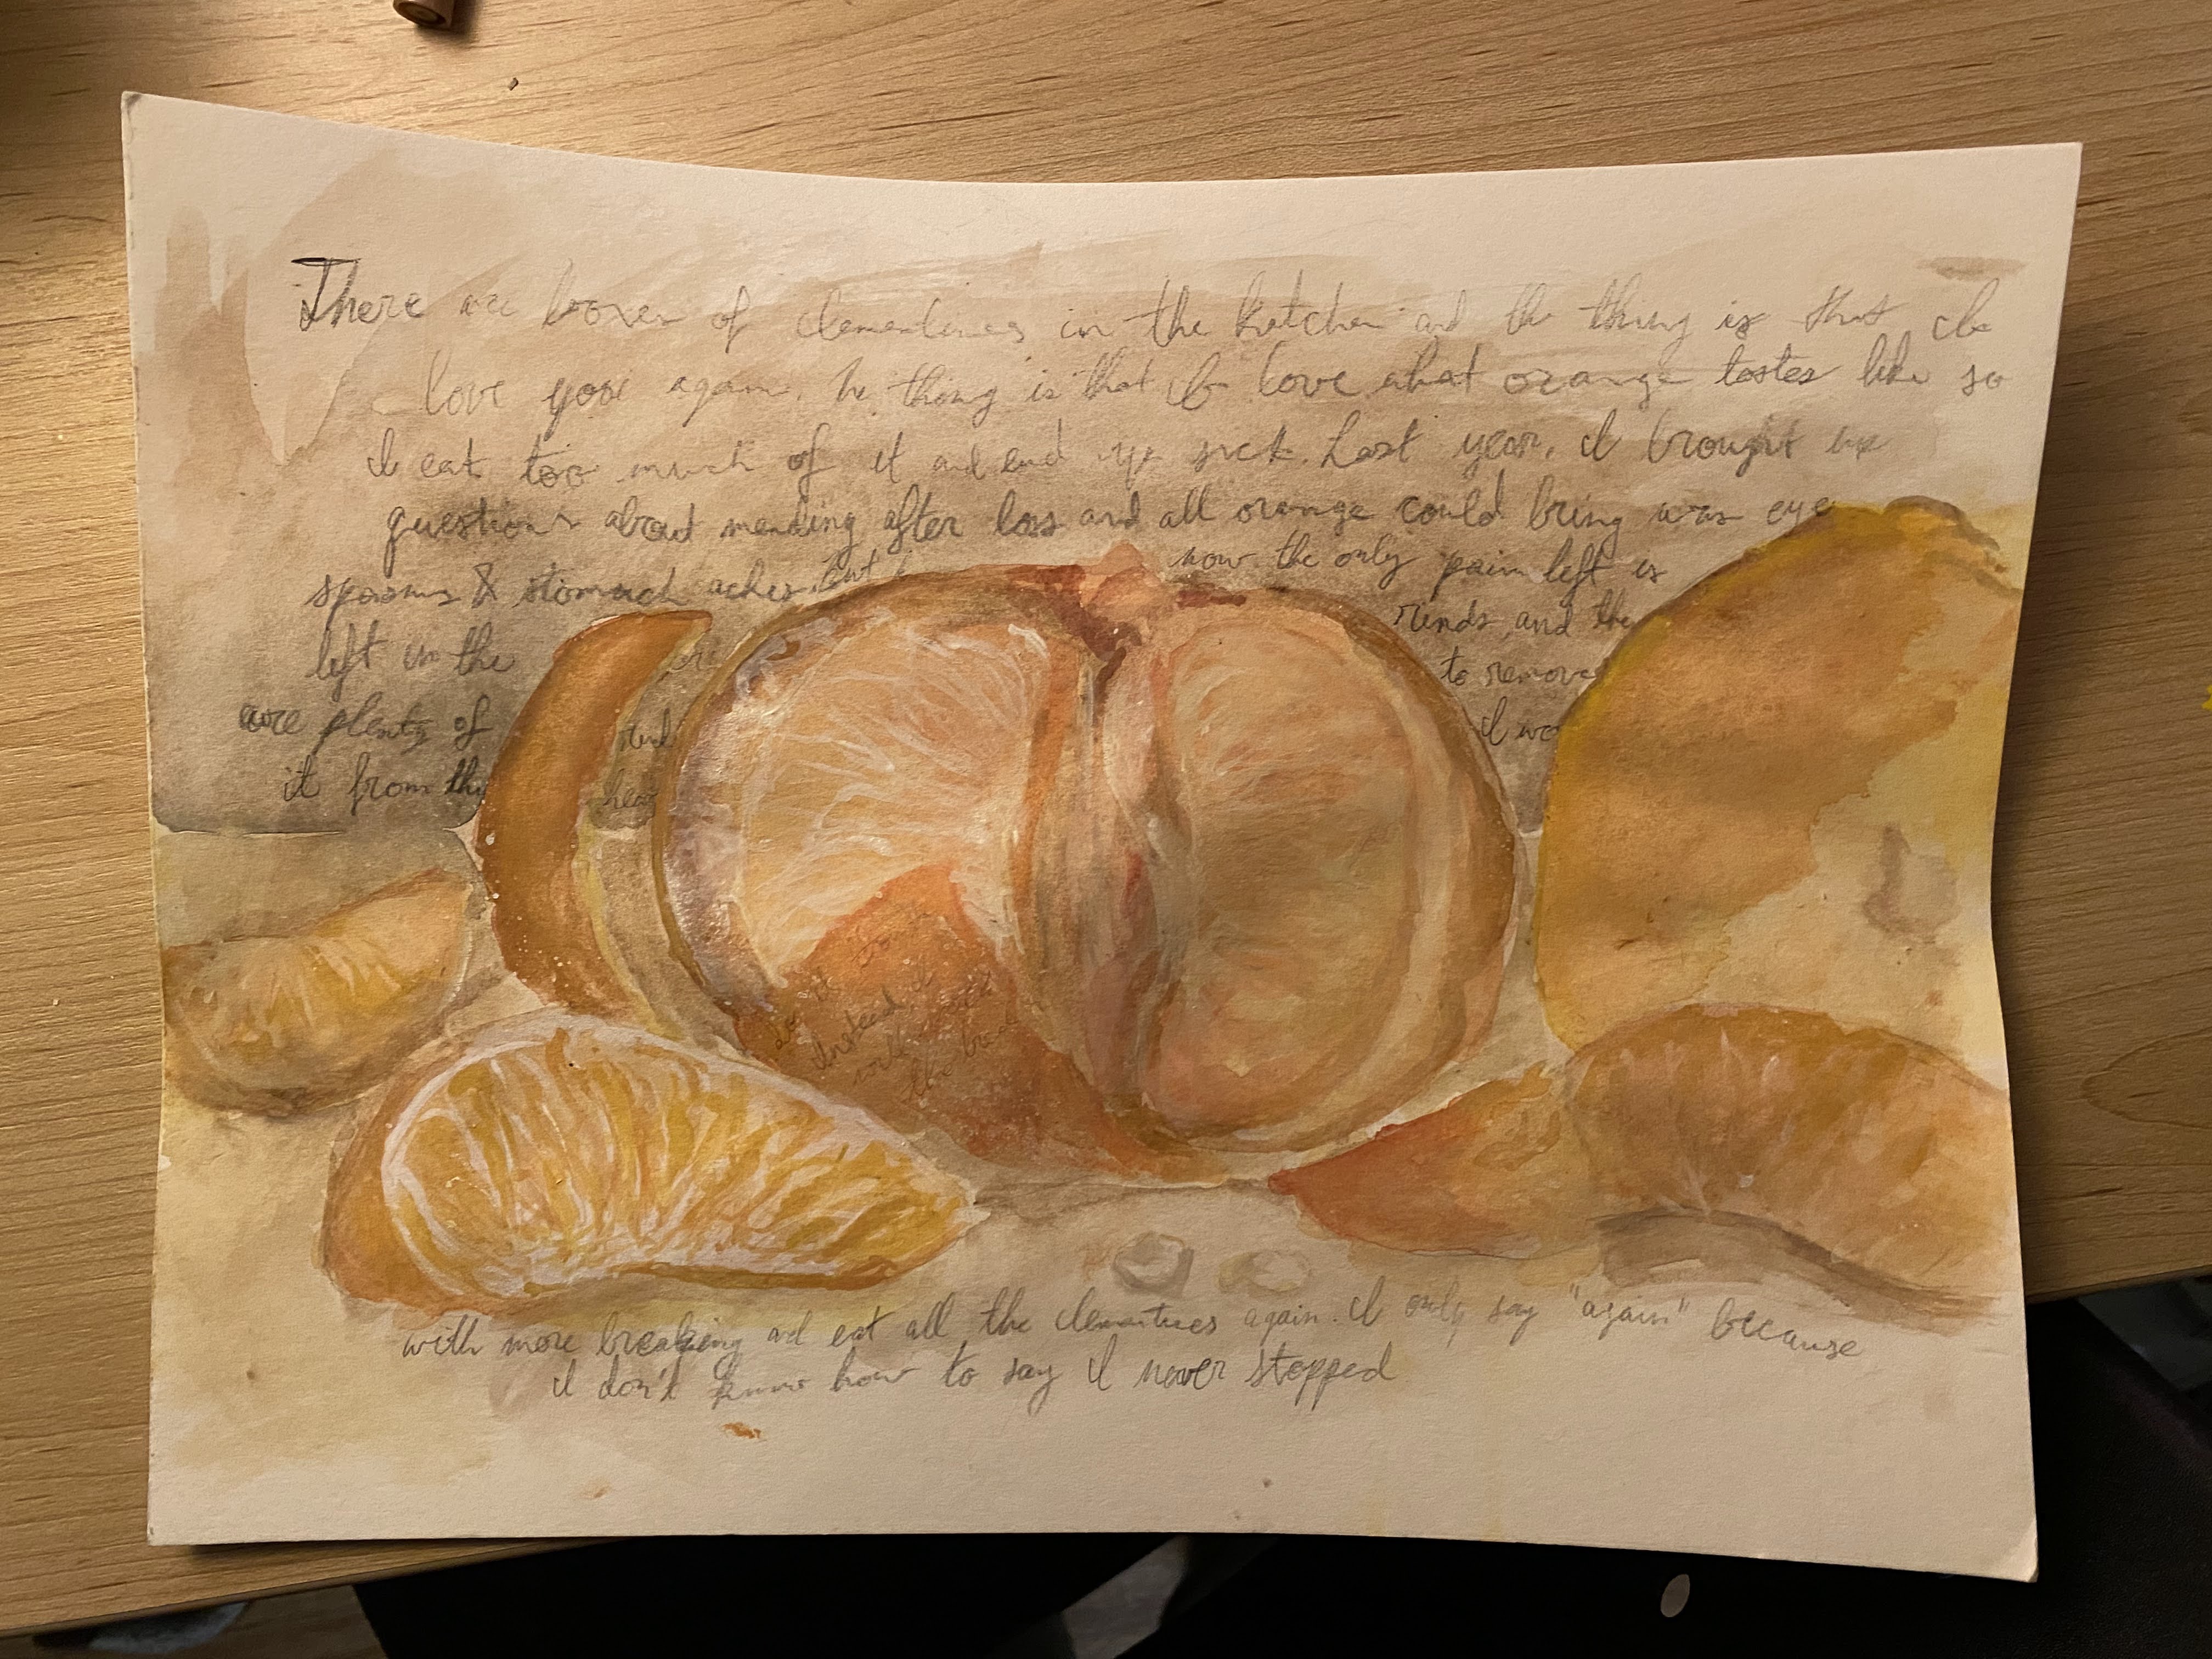 There are boxes of clementines in the kitchen and the thing is that I
love you again. he thing is that I love what orange tastes like so
I eat too much of it and end up sick. Last year, I brought up
questions about mending after loss and all orange could bring was eye
spasms & stomach aches. But
now the only pain left is
left in the
rinds, and the
to remove
are plenty of
and
I wo
it from the
hea
don't
do it
Instead, I
with more breaking and eat all the clementines again. I only say "again" because
I don't know how to say I never stopped